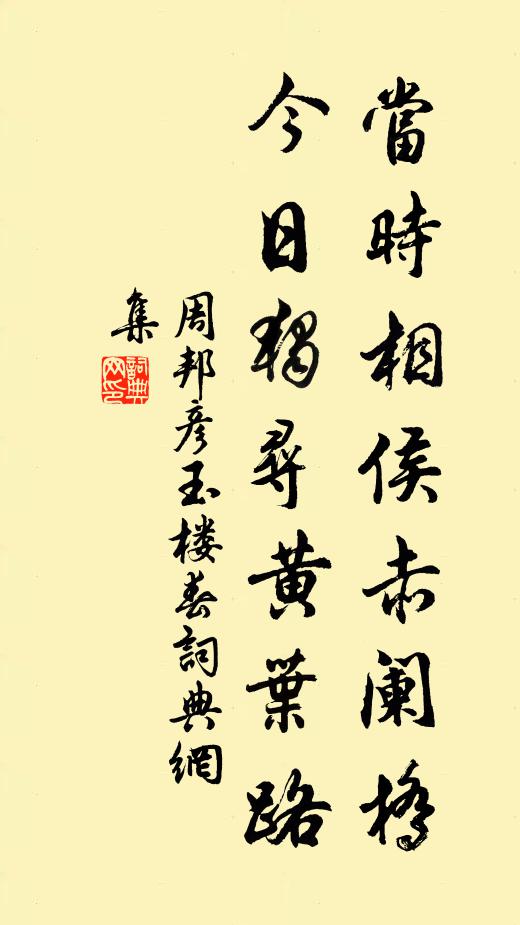 當時相侯赤闌橋
今日獨尋黃葉路
周邦彥玉楼春詞典網
集
詞典
网印